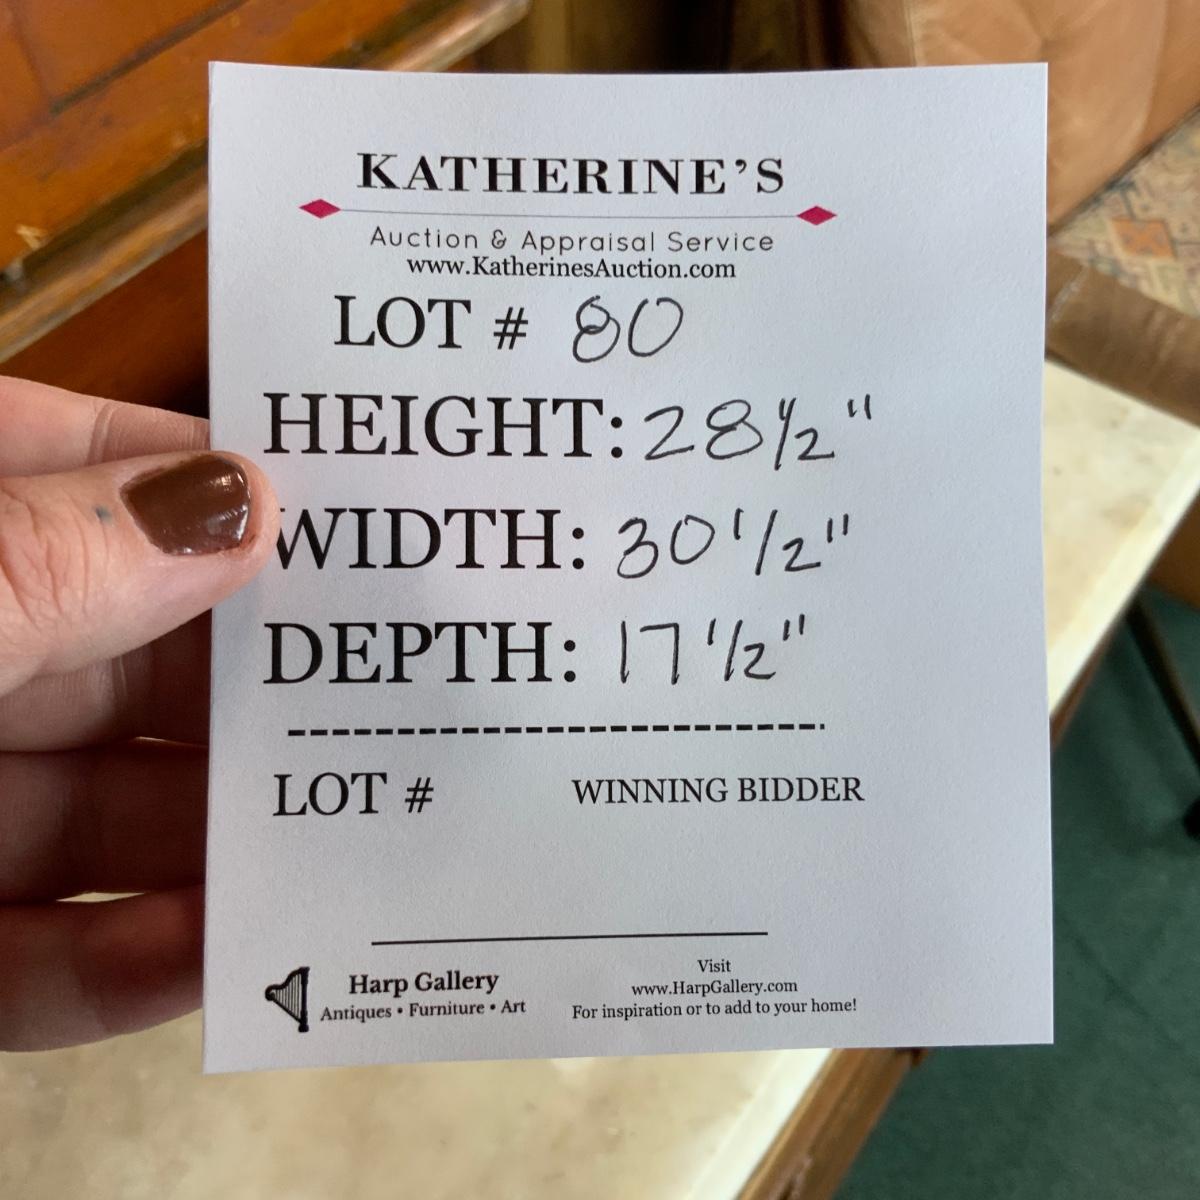 KATHERINE'S
Auction & Appraisal Service
www.KatherinesAuction.com
LOT # 80
HEIGHT: 28 1/2"
WIDTH: 30 1/2"
DEPTH: 17 1/2"
LOT # WINNING BIDDER
Harp Gallery
Antiques • Furniture • Art
Visit
www.HarpGallery.com
For inspiration or to add to your home!